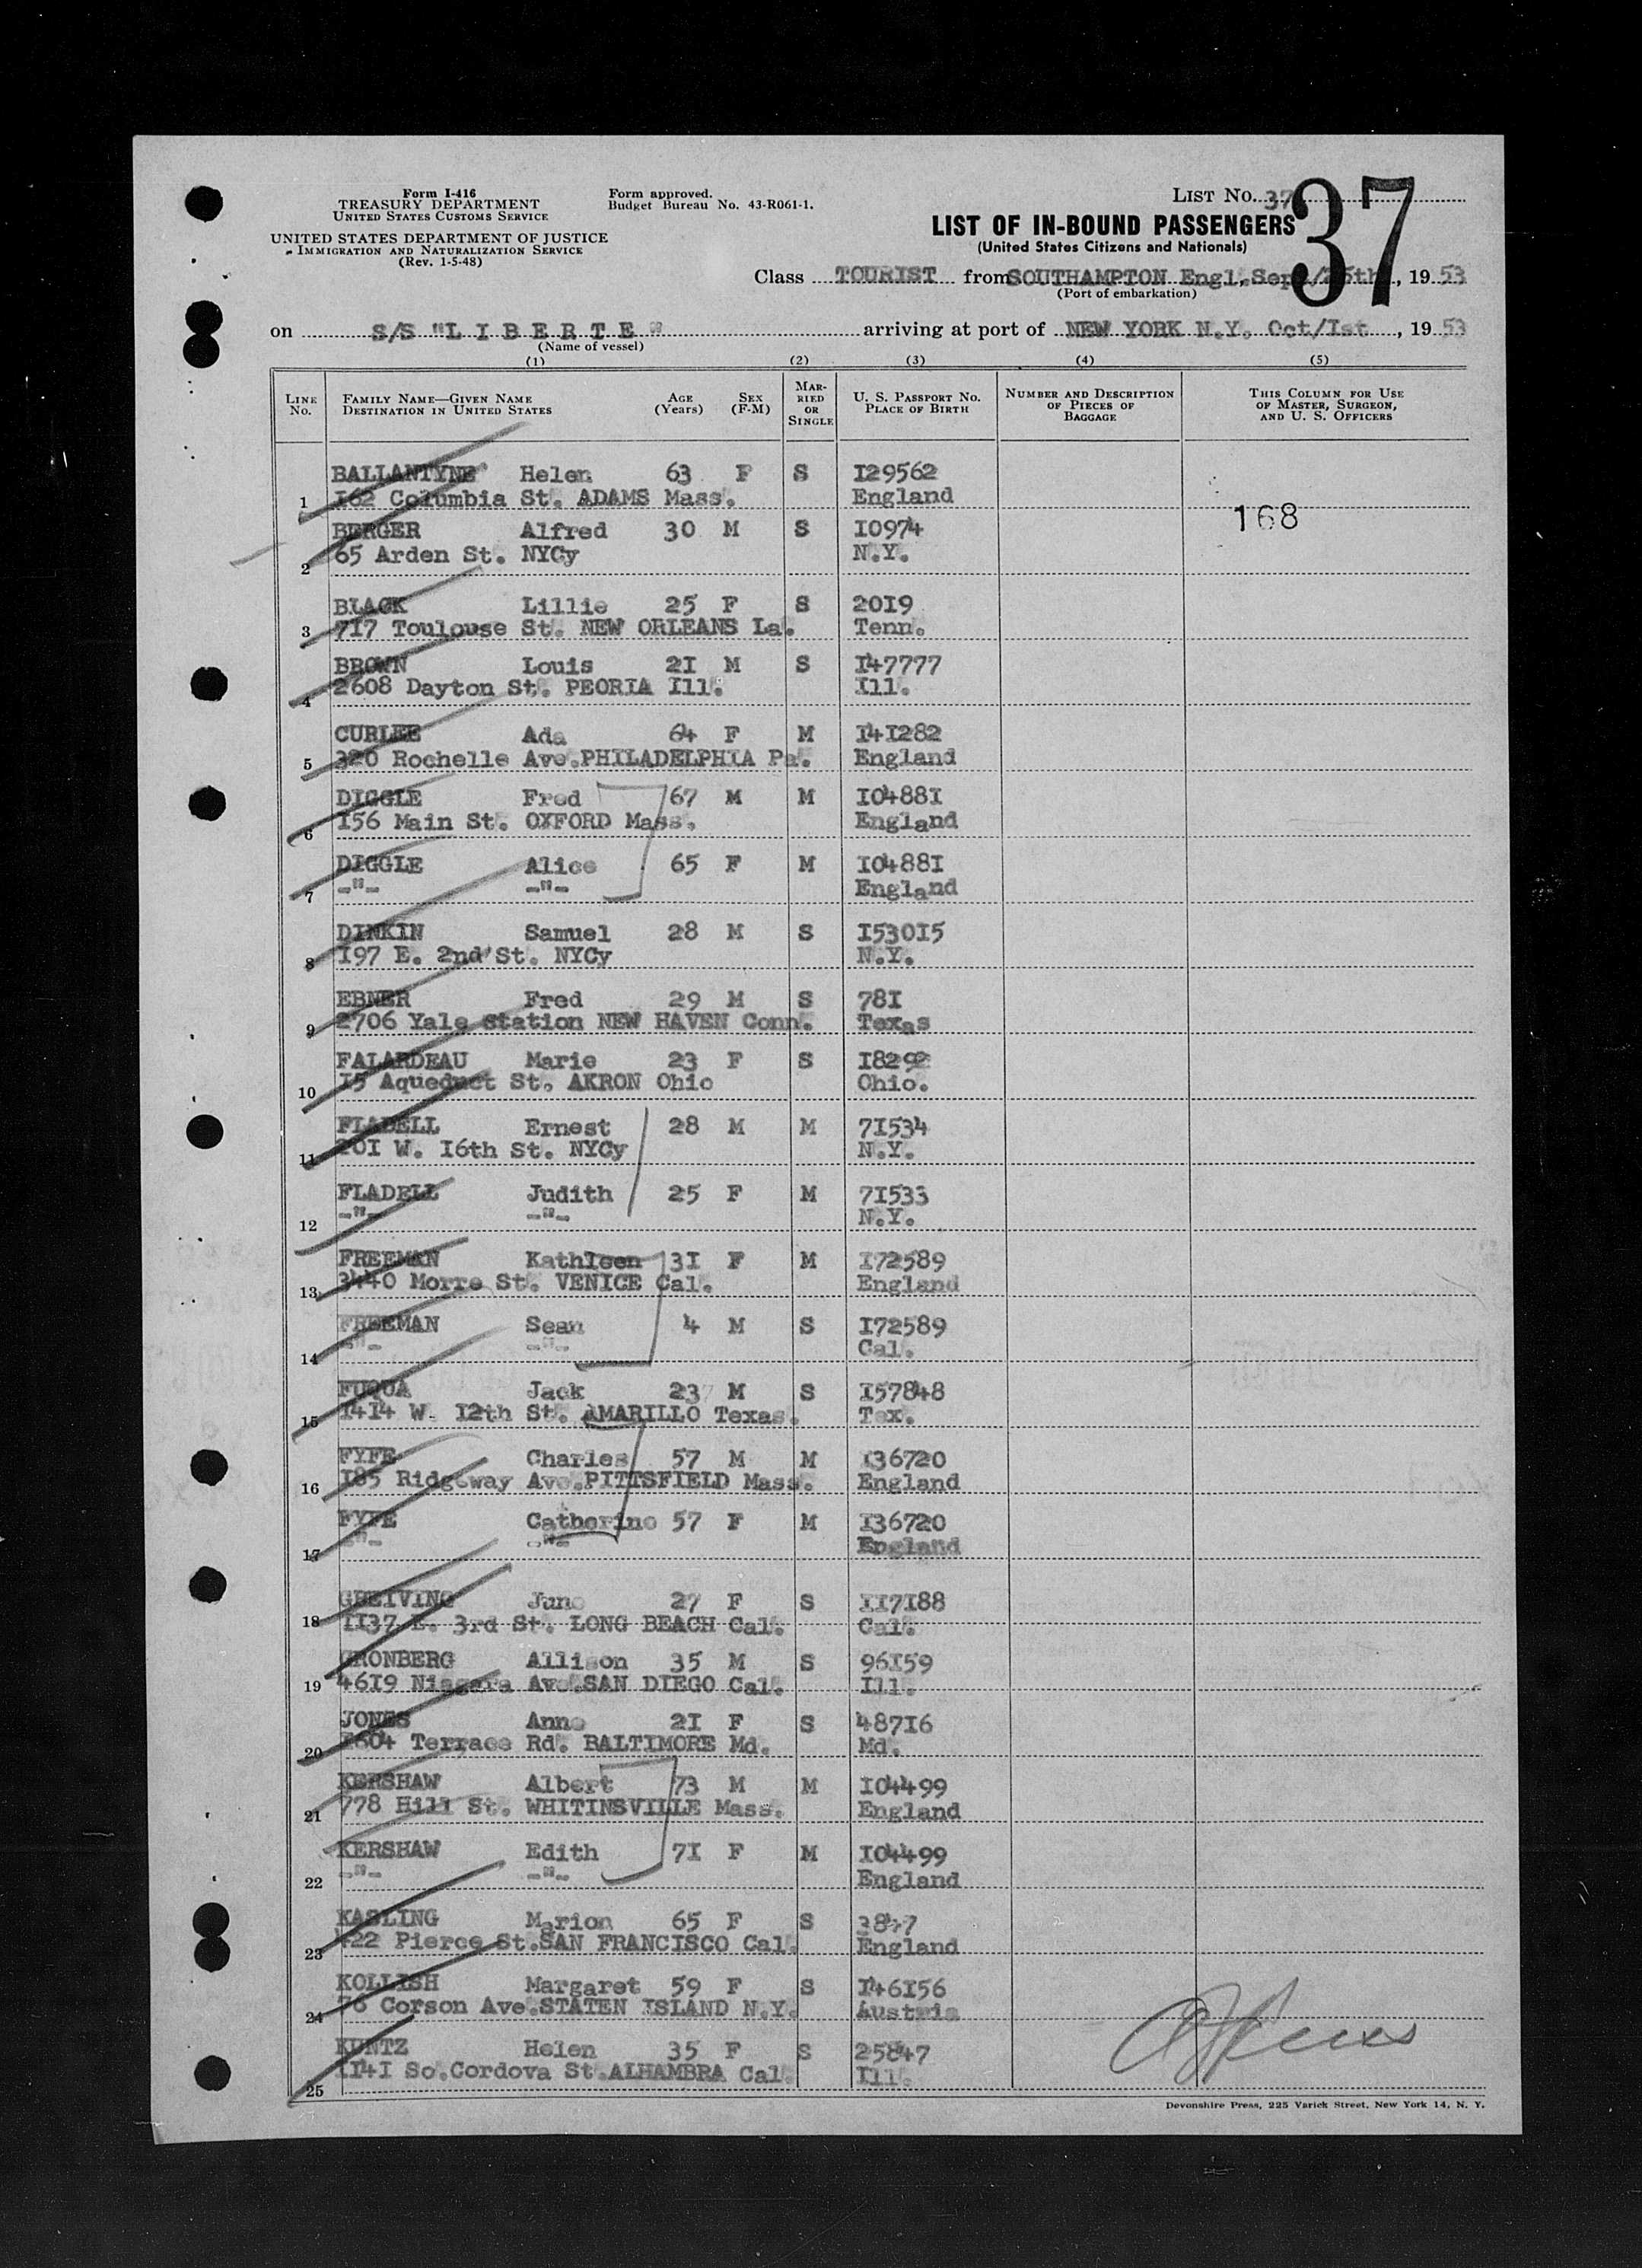 Form I-416
TREASURY DEPARTMENT
UNITED STATES CUSTOMS SERVICE
UNITED STATES DEPARTMENT OF JUSTICE
IMMIGRATION AND NATURALIZATION SERVICE
(Rev. 1-5-48)
Form approved.
Budget Bureau No. 43-R061-1.
LIST NO. 37
37
LIST OF IN-BOUND PASSENGERS
(United States Citizens and Nationals)
Class TOURIST from SOUTHAMPTON Engl, Sept/25th, 1953
(Port of embarkation)
on S/S "L I B E R T E" arriving at port of NEW YORK N.Y. Oct/Ist, 1953
(Name of vessel)
(1) (2) (3) (4) (5)
LINE NO. FAMILY NAME—GIVEN NAME DESTINATION IN UNITED STATES AGE (Years) SEX (F-M) MARRIED OR SINGLE U. S. PASSPORT NO. PLACE OF BIRTH NUMBER AND DESCRIPTION OF PIECES OF BAGGAGE THIS COLUMN FOR USE OF MASTER, SURGEON, AND U. S. OFFICERS
BALLANTYNE Helen 63 F S I29562
1 I62 Columbia St. ADAMS Mass. England
168
BERGER Alfred 30 M S I0974
2 65 Arden St. NYCy N.Y.
BLACK Lillie 25 F S 20I9
3 7I7 Toulouse St. NEW ORLEANS La. Tenn.
BROWN Louis 2I M S I47777
4 2608 Dayton St. PEORIA Ill. Ill.
CURLEE Ada 64 F M I4I282
5 320 Rochelle Ave. PHILADELPHIA Pa. England
DIGGLE Fred 67 M M I0488I
6 I56 Main St. OXFORD Mass. England
DIGGLE Alice 65 F M I0488I
7 -"- -"- England
DINKIN Samuel 28 M S I530I5
8 I97 E. 2nd St. NYCy N.Y.
EBNER Fred 29 M S 78I
9 2706 Yale Station NEW HAVEN Conn. Texas
FALARDEAU Marie 23 F S I8292
10 I5 Aqueduct St. AKRON Ohio Ohio.
FLADELL Ernest 28 M M 7I534
11 20I W. I6th St. NYCy N.Y.
FLADELL Judith 25 F M 7I533
12 -"- -"- N.Y.
FREEMAN Kathleen 3I F M I72589
13 3440 Morre St. VENICE Cal. England
FREEMAN Sean 4 M S I72589
14 -"- -"- Cal.
FUQUA Jack 23 M S I57848
15 I4I4 W. I2th St. AMARILLO Texas. Tex.
FYFE Charles 57 M M I36720
16 I85 Ridgeway Ave. PITTSFIELD Mass. England
FYFE Catherine 57 F M I36720
17 -"- -"- England
GREIVING June 27 F S II7I88
18 II37 E. 3rd St. LONG BEACH Cal. Cal.
GRONBERG Allison 35 M S 96I59
19 46I9 Niagara Av. SAN DIEGO Cal. Ill.
JONES Anne 2I F S 487I6
20 Terrace Rd. BALTIMORE Md. Md.
KERSHAW Albert 73 M M I04499
21 778 Hill St. WHITINSVILLE Mass. England
KERSHAW Edith 7I F M I04499
22 -"- -"- England
KASLING Marion 65 F S
23 422 Pierce St. SAN FRANCISCO Cal. England
KOLLISH Margaret 59 F S I46I56
24 76 Corson Ave. STATEN ISLAND N.Y. Austria
KUNTZ Helen 35 F S 25847
25 II4I So. Cordova St. ALHAMBRA Cal. Ill.
Devonshire Press, 225 Varick Street, New York 14, N. Y.